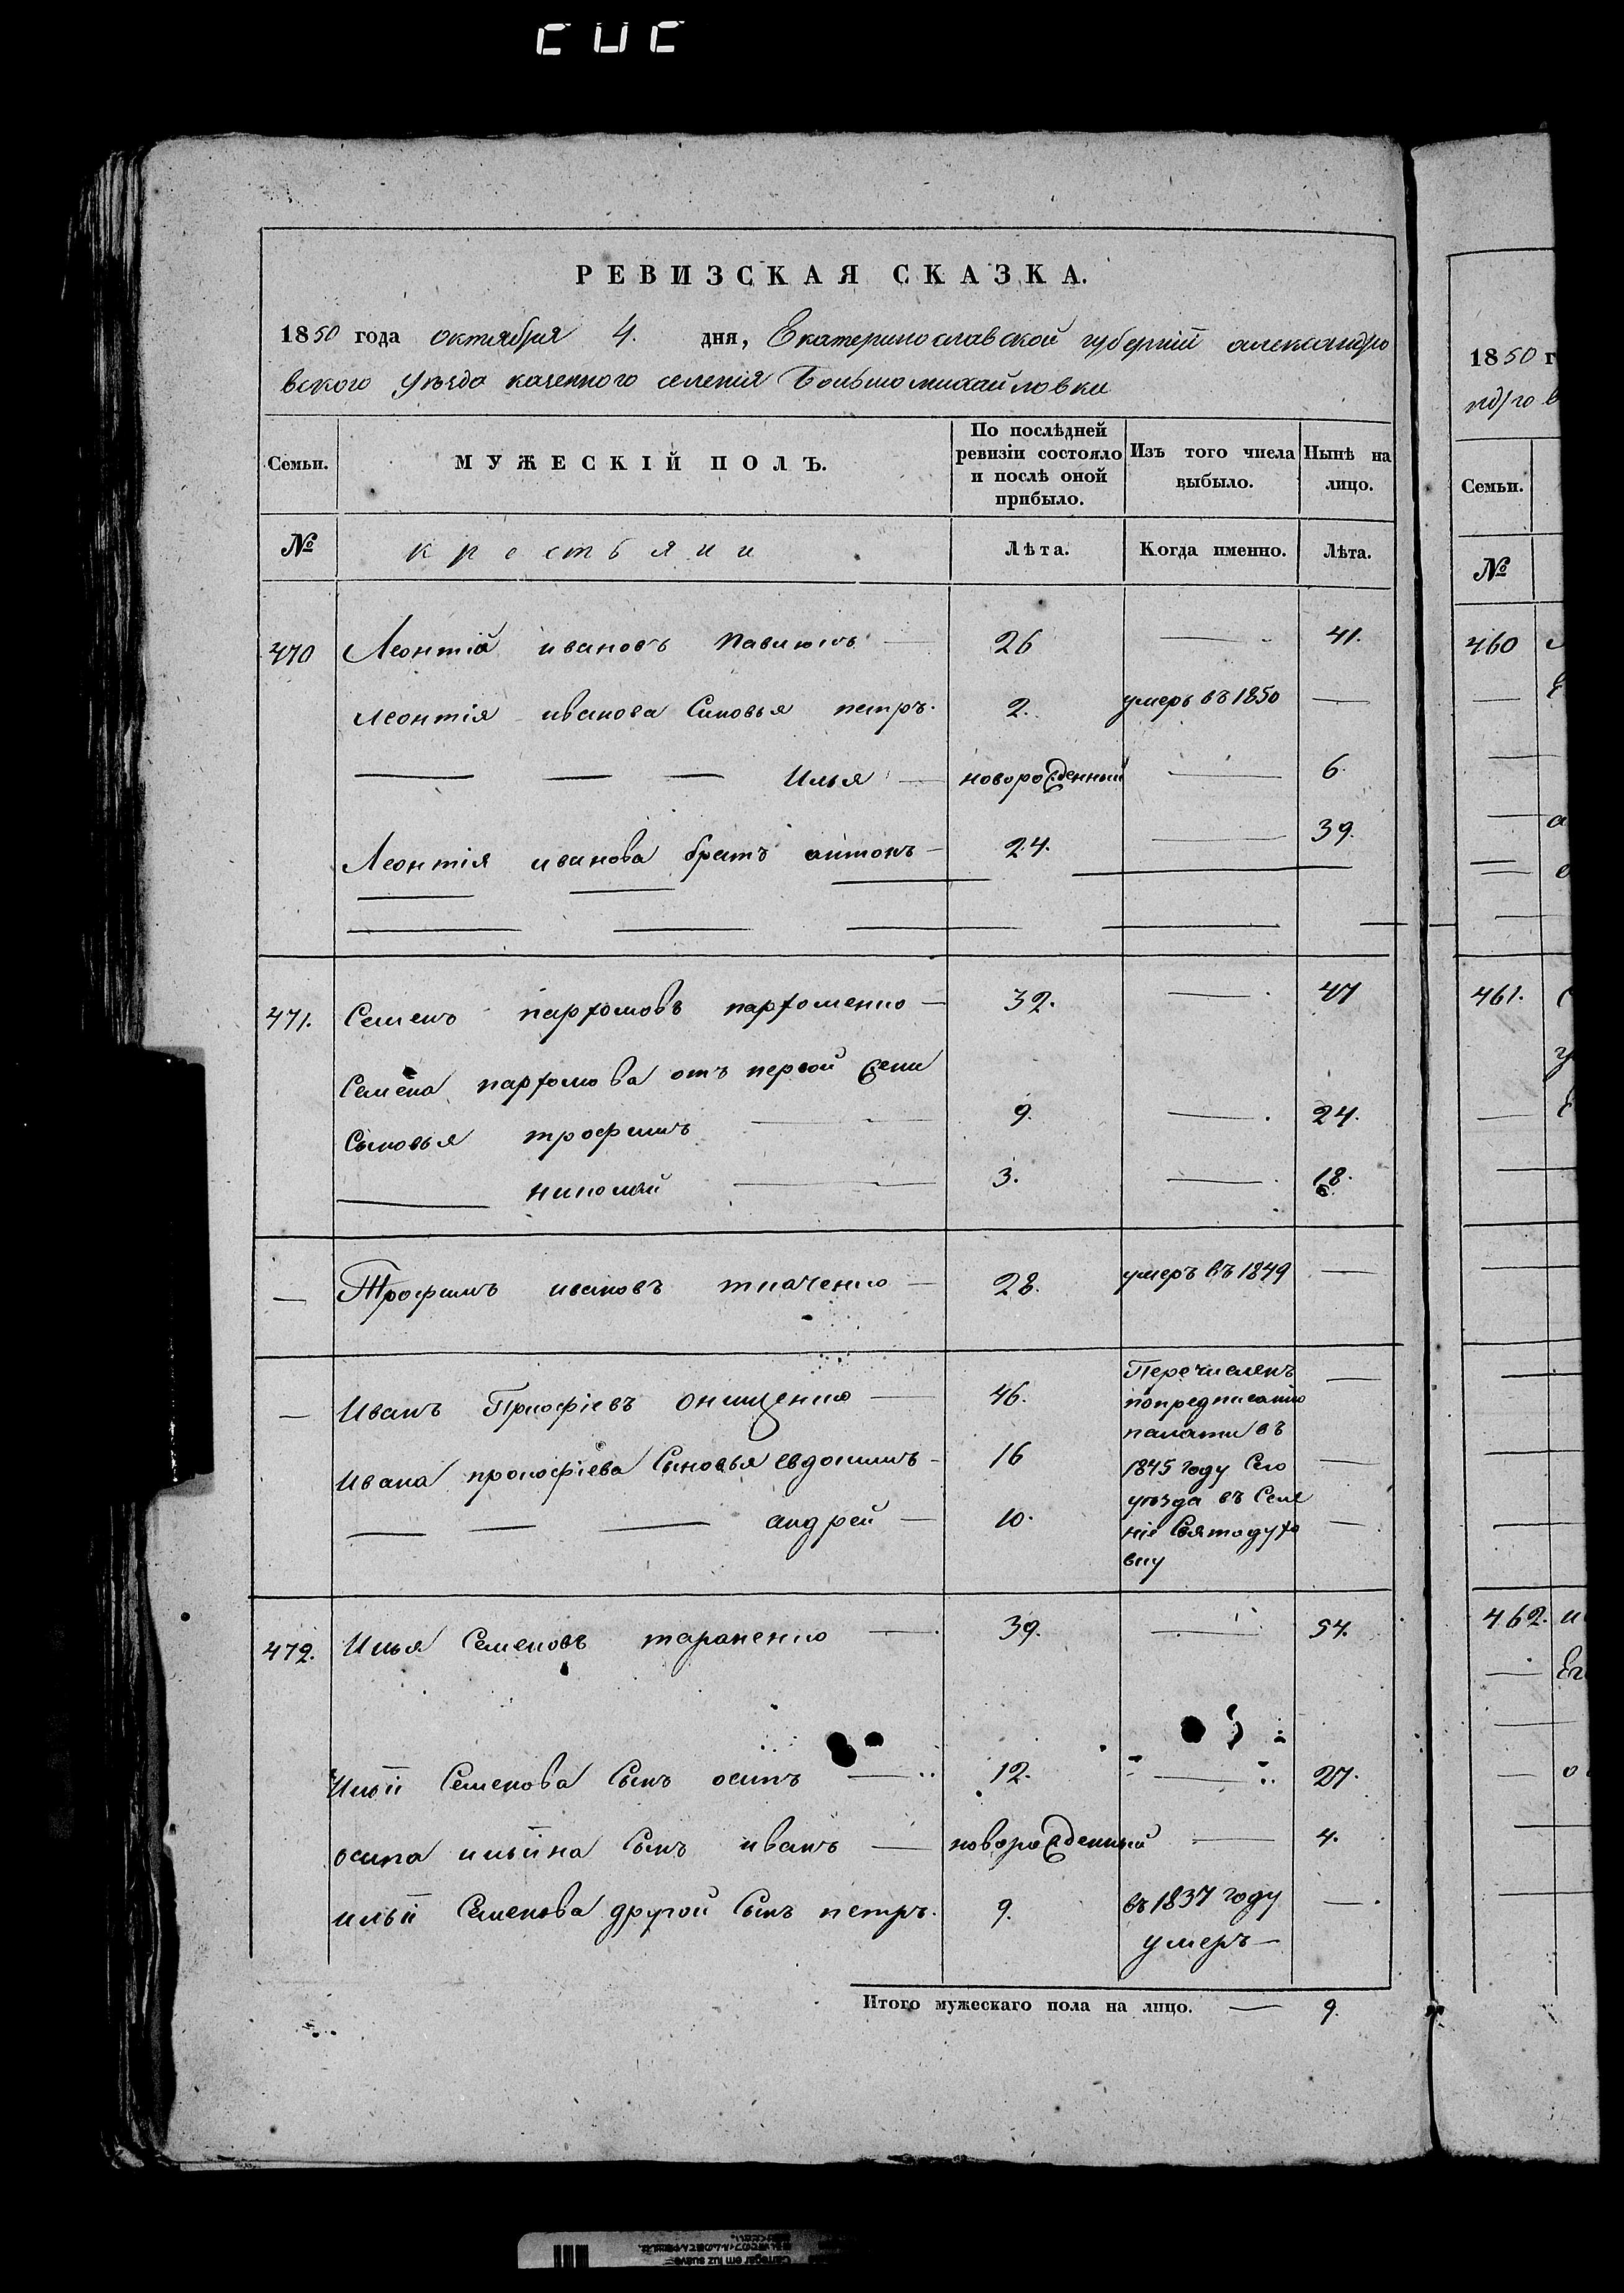 РЕВИЗСКАЯ СКАЗКА.
1850 года октября 4. дня, Екатеринославской губерніи александро
вского уезда казенного селенія Большомихайловки
Семьи.
МУЖЕСКІЙ ПОЛЪ.
По послѣдней ревизіи состояло и послѣ оной прибыло.
Изъ того числа выбыло.
Нынѣ на лицо.
№ крестьяни Лѣта. Когда именно. Лѣта.
470 Леонтій ивановъ 26 — 41.
Леонтія иванова Сыновья петръ. 2. умеръ въ 1850 —
— — — Илья — новорожденный — 6.
Леонтія иванова братъ антонъ — 24. — 39.
471. Семенъ парфомовъ парфоменко — 32. — 47
Семена парфомова отъ первой жени
Сыновья трофимъ — 9. — 24.
— николай — 3. — 18.
— Трофимъ ивановъ ткаченко — 28. умеръ въ 1849 —
— Иванъ Прокофіевъ онищенко — 46. Перечисленъ —
попредписанію
палати въ
Ивана прокофіева Сыновья евдокимъ — 16 1845 году Сего —
уезда въ Селе
— — — андрей — 10. ніе Святодухо —
вку
472. Илья Семеновъ тараненко — 39. — 54.
Ильіи Семенова Сынъ осипъ — 12. — 27.
осипа ильіина Сынъ иванъ — новорожденный — 4.
ильіи Семенова другой Сынъ петръ. 9. въ 1837 году —
умеръ —
Итого мужескаго пола на лицо. — 9.
1850 г
Семьи.
№
460
461.
462.